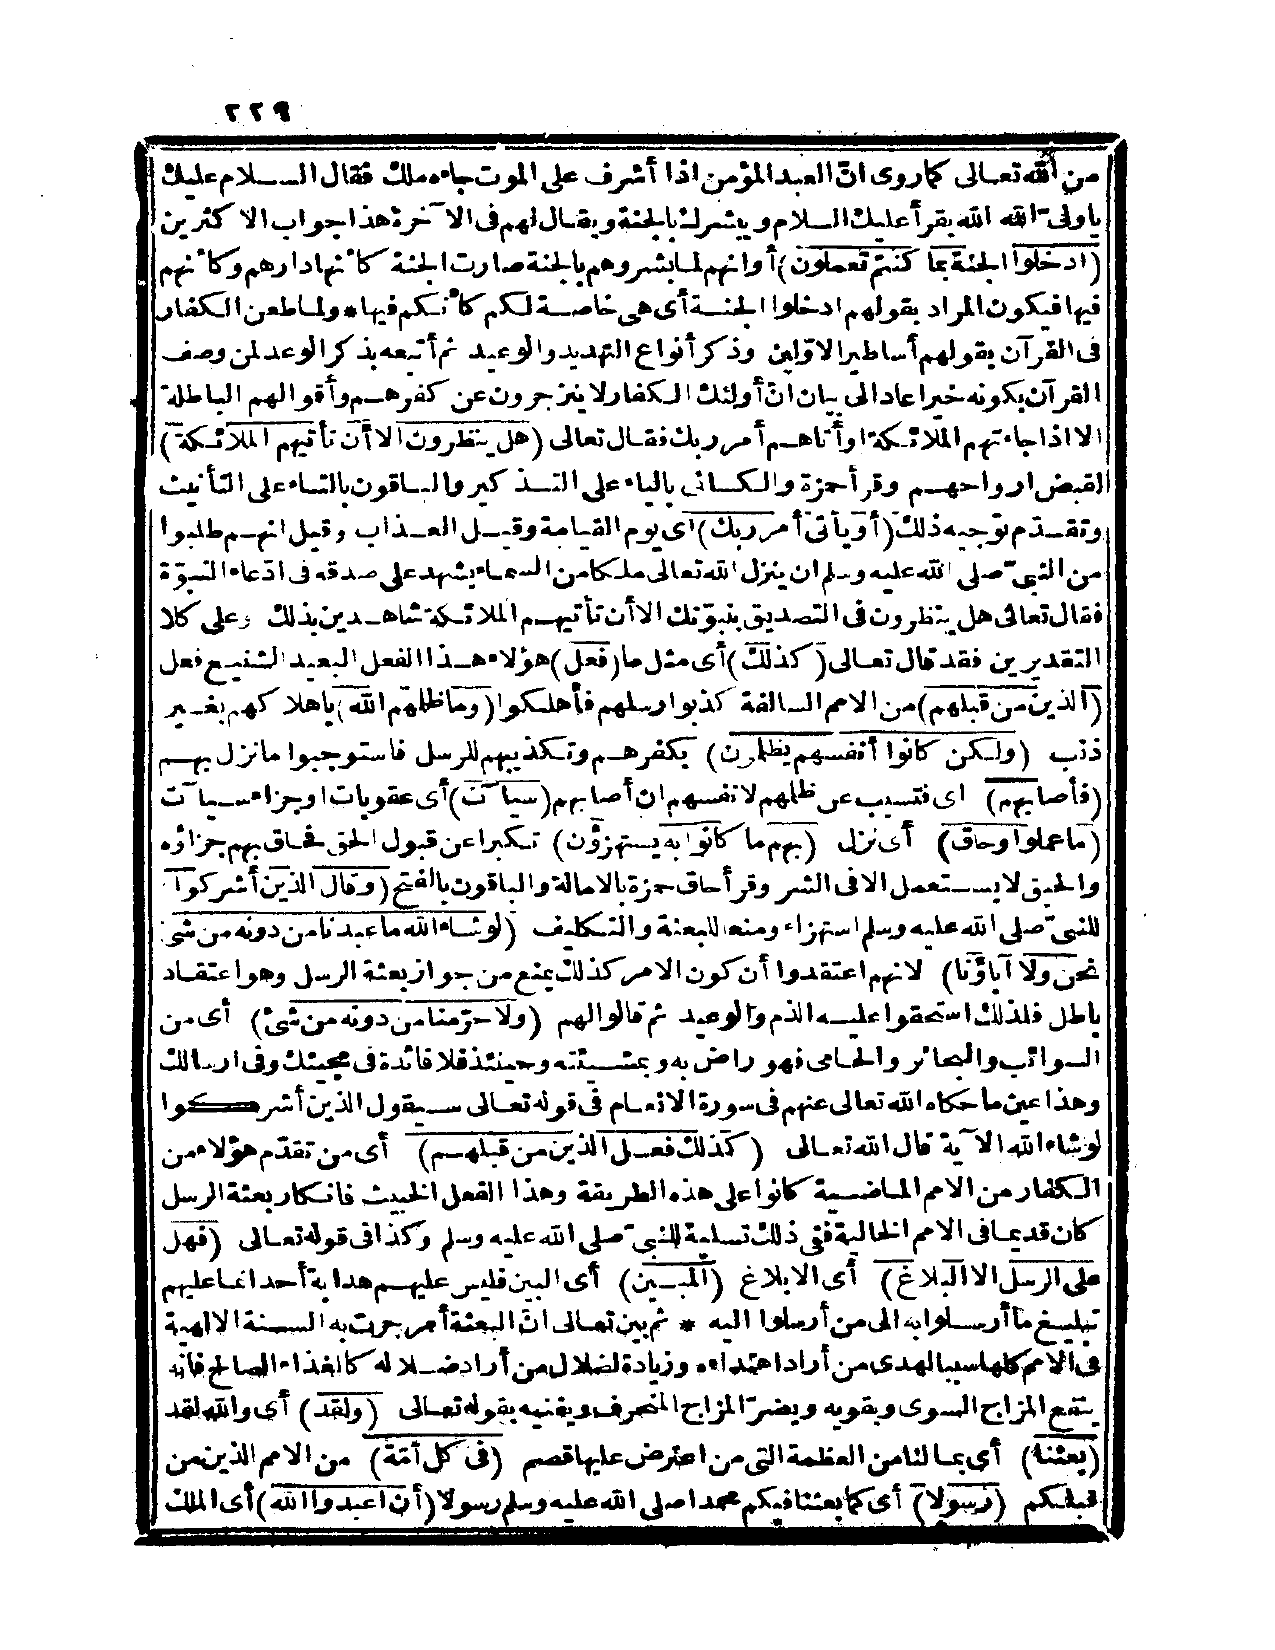 ٢٢٩
من الله تعالى كما روى انّ العبد المؤمن اذا أشرف على الموت جاءه ملك فقال السلام عليك
ياولىّ الله الله يقرأ عليك السلام ويبشرك بالجنة ويقال لهم فى الآخرة هذا جواب الاكثرين
(ادخلوا الجنة بما كنتم تعملون) أو انهم لما بشروهم بالجنة صارت الجنة كأنها دارهم وكأنهم
فيها فيكون المراد بقولهم ادخلوا الجنة أى هى خاصة لكم كأنكم فيها * ولما طعن الكفار
فى القرآن بقولهم أساطير الاوّلين وذكر أنواع التهديد والوعيد ثم أتبعه بذكر الوعد لمن وصف
القرآن بكونه خيرا عاد الى بيان انّ أولئك الكفار لا ينزجرون عن كفرهم وأقوالهم الباطلة
الا اذا جاءتهم الملائكة او أتاهم أمر ربك فقال تعالى (هل ينظرون الا أن تأتيهم الملائكة)
القبض ارواحهم وقرأ حمزة والكسائى بالياء على التذكير والباقون بالتاء على التأنيث
وتقدم توجيه ذلك (أو يأتى أمر ربك) اى يوم القيامة وقيل العذاب وقيل انهم طلبوا
من النبىّ صلى الله عليه وسلم ان ينزل الله تعالى ملكا من السماء يشهد على صدقه فى ادّعاء النبوّة
فقال تعالى هل ينظرون فى التصديق بنبوّتك الا أن تأتيهم الملائكة شاهدين بذلك وعلى كلا
التقديرين فقد قال تعالى (كذلك) أى مثل ما (فعل) هؤلاء هذا الفعل البعيد الشنيع فعل
(الذين من قبلهم) من الامم السالفة كذبوا رسلهم فأهلكوا (وما ظلمهم الله) باهلاكهم بغير
ذنب (ولكن كانوا أنفسهم يظلمون) بكفرهم وتكذيبهم للرسل فاستوجبوا ما نزل بهم
(فأصابهم) اى فتسبب عن ظلمهم لانفسهم ان أصابهم (سيآت) أى عقوبات او جزاء سيآت
(ما عملوا وحاق) أى نزل (بهم ما كانوا به يستهزؤن) تكبرا عن قبول الحق فحاق بهم جزاؤه
والحيق لا يستعمل الا فى الشر وقرأ حاق حمزة بالامالة والباقون بالفتح (وقال الذين أشركوا)
للنبىّ صلى الله عليه وسلم استهزاء ومنعا للبعثة والتكليف (لو شاء الله ما عبدنا من دونه من شئ
نحن ولا آباؤنا) لانهم اعتقدوا أن كون الامر كذلك يمنع من جواز بعثة الرسل وهو اعتقاد
باطل فلذلك استحقوا عليه الذم والوعيد ثم قالوا لهم (ولا حرّمنا من دونه من شئ) أى من
السوائب والبحائر والحامى فهو راض به وبمشيئته وحينئذ فلا فائدة فى مجيئك وفى ارسالك
وهذا عين ما حكاه الله تعالى عنهم فى سورة الانعام فى قوله تعالى سيقول الذين أشركوا
لو شاء الله الآية قال الله تعالى (كذلك فعل الذين من قبلهم) أى من تقدّم هؤلاء من
الكفار من الامم الماضية كانوا على هذه الطريقة وهذا الفعل الخبيث فانكار بعثة الرسل
كان قديما فى الامم الخالية ففى ذلك تسلية للنبىّ صلى الله عليه وسلم وكذا فى قوله تعالى (فهل
على الرسل الا البلاغ) أى الابلاغ (المبين) أى البين فليس عليهم هداية أحد انما عليهم
تبليغ ما أرسلوا به الى من أرسلوا اليه * ثم بين تعالى انّ البعثة أمر جرت به السنة الالهية
فى الامم كلها سببا لهدى من أراد اهتداءه وزيادة لضلال من أراد ضلاله كالغذاء الصالح فانه
ينفع المزاج السوى ويقويه ويضرّ المزاج المنحرف ويفنيه بقوله تعالى (ولقد) أى والله لقد
(بعثنا) أى بمالنا من العظمة التى من اعترض عليها قصم (فى كل أمّة) من الامم الذين من
قبلكم (رسولا) أى كما بعثنا فيكم محمدا صلى الله عليه وسلم رسولا (أن اعبدوا الله) أى الملك